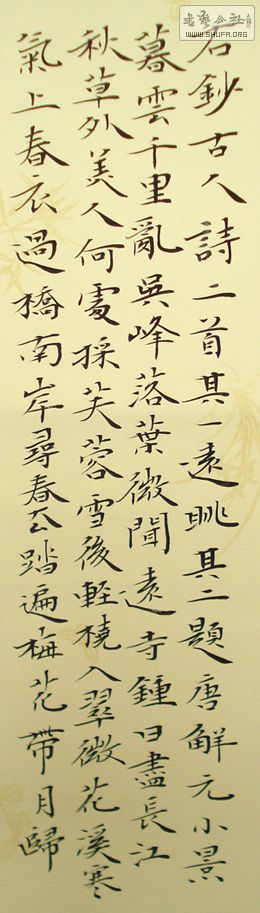 書藝公社
WWW.SHUFA.ORG
右鈔古人詩二首其一遠眺其二題唐解元小景
暮雲千里亂吳峰落葉微聞遠寺鍾日盡長江
秋草外美人何處採芙蓉雪後軽橈入翠微花溪寒
氣上春衣過橋南岸尋春去踏遍梅花帶月歸